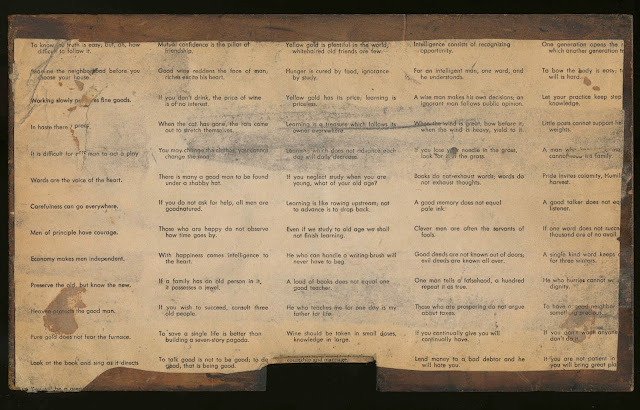 To know the truth is easy; but, ah, how
difficult to follow it.
the neighborhood before you
choose your house.
Working slowly fine goods.
In haste there
It is difficult for man to act a play
Words are the voice of the heart.
Carefulness can go everywhere.
Men of principle have courage.
Economy makes men independent.
Preserve the old, but know the new.
Heaven the good man.
Pure gold does not fear the furnace.
Look at the book and sing as it directs
Mutual confidence is the pillar of
friendship.
Good wine reddens the face of man,
riches excite his heart.
If you don't drink, the price of wine
is of no interest.
When the cat has gone, the rats come
out to stretch themselves.
You may change the clothes; you cannot
change the
There is many a good man to be found
under a shabby hat.
If you do not ask for help, all men are
goodnatured.
Those who are happy do not observe
how time goes by.
With happiness comes intelligence to
the heart.
If a family has an old person in it,
it possesses a jewel.
If you wish to succeed, consult three
old people.
To save a single life is better than
building a seven-story pagoda.
To talk good is not to be good; to do
good, that is being good.
Yellow gold is plentiful in the world,
whitehaired old friends are few.
Hunger is cured by food, ignorance
by study.
Yellow gold has its price, learning is
priceless.
Learning is a treasure which follows its
owner everywhere.
Learning which does not advance each
day will daily decrease.
If you neglect study when you are
young, what of your old age?
Learning is like rowing upstream; not
to advance is to drop back.
Even if we study to old age we shall
not finish learning.
He who can handle a writing-brush will
never have to beg.
A load of books does not equal one
good teacher.
He who teaches me for one day is my
father for life.
Wine should be taken in small doses,
knowledge in large.
Courtship and marriage
Intelligence consists of recognizing
opportunity.
For an intelligent man, one word, and
he understands.
A wise man makes his own decisions, an
ignorant man follows public opinion.
When the wind is great, bow before it,
when the wind is heavy, yield to it.
If you lose your needle in the grass,
look for it in the grass.
Books do not exhaust words; words do
not exhaust thoughts.
A good memory does not equal
pale ink.
Clever men are often the servants of
fools.
Good deeds are not known out of doors;
evil deeds are known all over.
One man tells a falsehood, a hundred
repeat it as true.
Those who are prospering do not argue
about taxes.
If you continually give you will
continually have.
Lend money to a bad debtor and he
will hate you.
One generation opens the
which another generation
To bow the body is easy,
will is hard.
Let your practice keep step
knowledge.
Little posts cannot support
weights.
A man who
cannot his family
Pride invites calamity,
harvest.
A good talker does not
listener.
If one word does not
thousand are of no avail.
A single kind word keeps
for three winters.
He who hurries cannot
dignity.
To have a good neighbor
something
If you don't want anyone
don't do
If you are not patient in
you will bring great